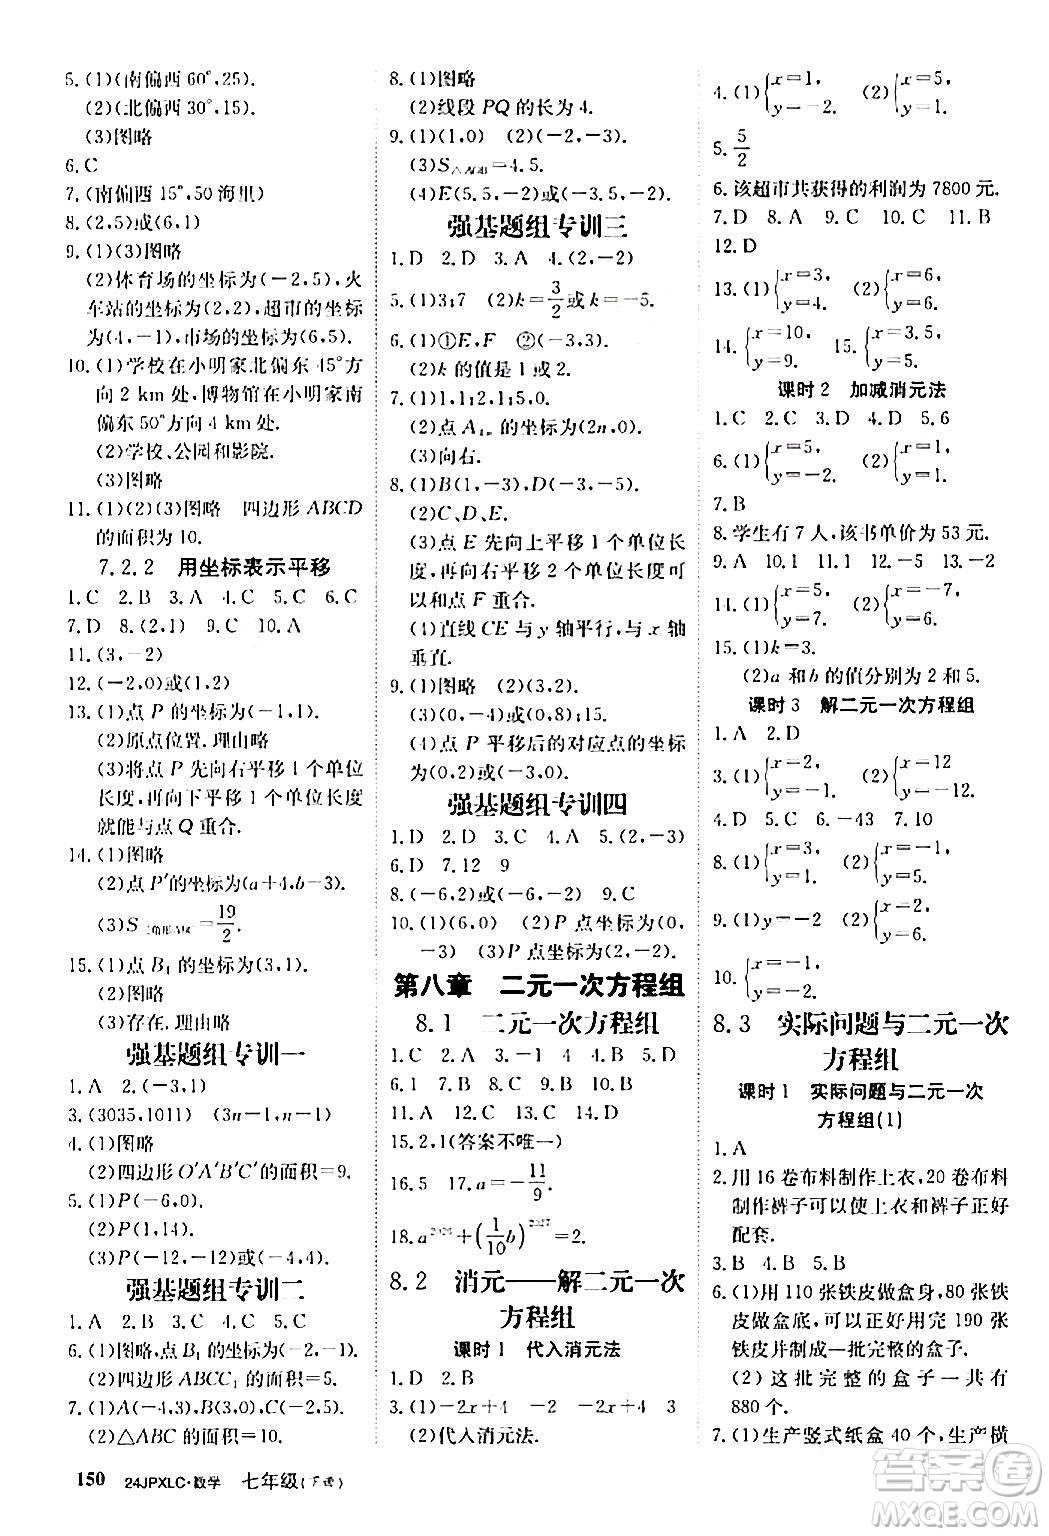 5.(1)(南偏西 60°,25).
(2)(北偏西 30°,15).
(3)图略
6.C
7.(南偏西 15°,50 海里)
8.(2,5)或(6,1)
9.(1)(3)图略
(2)体育场的坐标为(-2,5),火
车站的坐标为(2,2),超市的坐标
为(4,-1),市场的坐标为(6,5).
10.(1)学校在小明家北偏东 45°方
向 2 km 处,博物馆在小明家南
偏东 50°方向 4 km 处.
(2)学校、公园和影院.
(3)图略
11.(1)(2)(3)图略 四边形 ABCD
的面积为 10.
7.2.2 用坐标表示平移
1.C 2.B 3.A 4.C 5.C 6.D
7.D 8.(2,1) 9.C 10.A
11.(3,-2)
12.(-2,0)或(1,2)
13.(1)点 P 的坐标为(-1,1).
(2)原点位置.理由略
(3)将点 P 先向右平移 1 个单位
长度,再向下平移 1 个单位长度
就能与点 Q 重合.
14.(1)图略
(2)点 P′的坐标为(a+4,b-3).
(3)S三角形ABC=19/2.
15.(1)点 B₁ 的坐标为(3,1).
(2)图略
(3)存在.理由略
强基题组专训一
1.A 2.(-3,1)
3.(3035,1011) (3n-1,n)
4.(1)图略
(2)四边形 O′A′B′C′的面积=9.
5.(1)P(-6,0).
(2)P(1,14).
(3)P(-12,-12)或(-4,4).
强基题组专训二
1.A 2.D 3.C 4.B 5.B
6.(1)图略,点 B₁ 的坐标为(3,1).
(2)四边形 ABCC₁ 的面积=5.
7.(1)A(-3,3),B(3,0),C(-2,5).
(2)△ABC 的面积=10.
8.(1)图略
(2)线段 PQ 的长为 4.
9.(1)(1,0) (2)(-2,-3).
(3)S△AOB=4.5.
(4)E(5.5,-2)或(-3.5,-2).
强基题组专训三
1.D 2.D 3.A 4.(-3,2)
5.(1)3;7 (2)k=3/2或k=-5.
6.(1)①E,F ②(-3,3).
(2)k 的值是 1 或 2.
7.(1)1,1;2,1;2,0.
(2)点 A₄ₙ 的坐标为(2n,0).
(3)向右.
8.(1)B(4,1),D(-2,3).
(2)C、D、E.
(3)点 E 先向上平移 1 个单位长
度,再向右平移 6 个单位长度可
以和点 F 重合.
(4)直线 CE 与 y 轴平行,与 x 轴
垂直.
9.(1)图略 (2)(3,2).
(3)(0,-4)或(0,8);15.
(4)P 平移后的对应点的坐标为
(0,2)或(-3,0).
强基题组专训四
1.D 2.D 3.C 4.A 5.(2,-3)
6.D 7.12 9
8.(-6,2)或(-2,-6) 9.C
10.(1)(6,0) (2)P 点坐标为(0,
-3) (3)P 点坐标为(2,-2).
第八章 二元一次方程组
8.1 二元一次方程组
1.C 2.D 3.-1 4.C 5.D
6.1 7.B 8.C 9.B 10.D
11.A 12.C 13.C 14.D
15.2,1(答案不唯一)
16.5 17.a=-11/9.
18.a²⁰²⁶+(1/10 b)²⁰²⁷=2.
8.2 消元——解二元一次
方程组
课时 1 代入消元法
1.D 2.B
3.(1)-2x+4 -2x+4 1 3
(2)代入消元法.
4.(1){x=1, y=-2. (2){x=5, y=1.
5.5/2
6.该超市共获得的利润为 7800 元.
7.D 8.A 9.C 10.A 11.B
12.D
13.(1){x=3, y=4. (2){x=6, y=1.
14.{x=10, y=9. 15.{x=3.5, y=4.
课时 2 加减消元法
1.C 2.C 3.D 4.D 5.6
6.(1){x=5, y=-2. (2){x=4, y=1.
7.B
8.学生有 7 人,该书单价为 53 元.
9.A 10.1 11.A 12.-5 13.-2
14.(1){x=5, y=7. (2){x=-7, y=6.
15.(1)k=3.
(2)a 和 b 的值分别为 2 和 5.
课时 3 解二元一次方程组
1.A 2.D
3.(1){x=2, y=-1. (2){x=-12, y=-12.
4.D 5.C 6.-43 7.10
8.(1){x=3, y=2. (2){x=-1, y=1.
9.(1)y=-2 (2){x=-2, y=6.
10.{x=5, y=-2.
8.3 实际问题与二元一次
方程组
课时 1 实际问题与二元一次
方程组(1)
1.A
2.用 16 卷布料制作上衣,20 卷布料
制作裤子可以使上衣和裤子正好
配套.
3.B 4.B 5.A
6.(1)用 110 张铁皮做盒身,80 张铁
皮做盒底,可以正好用完 190 张
铁皮并制成一批完整的盒子.
(2)这批完整的盒子一共有
880 个.
7.(1)生产竖式纸盒 40 个,生产横
150 24JPXLC·数学 七年级(下册)
答案圈
MXQE.COM